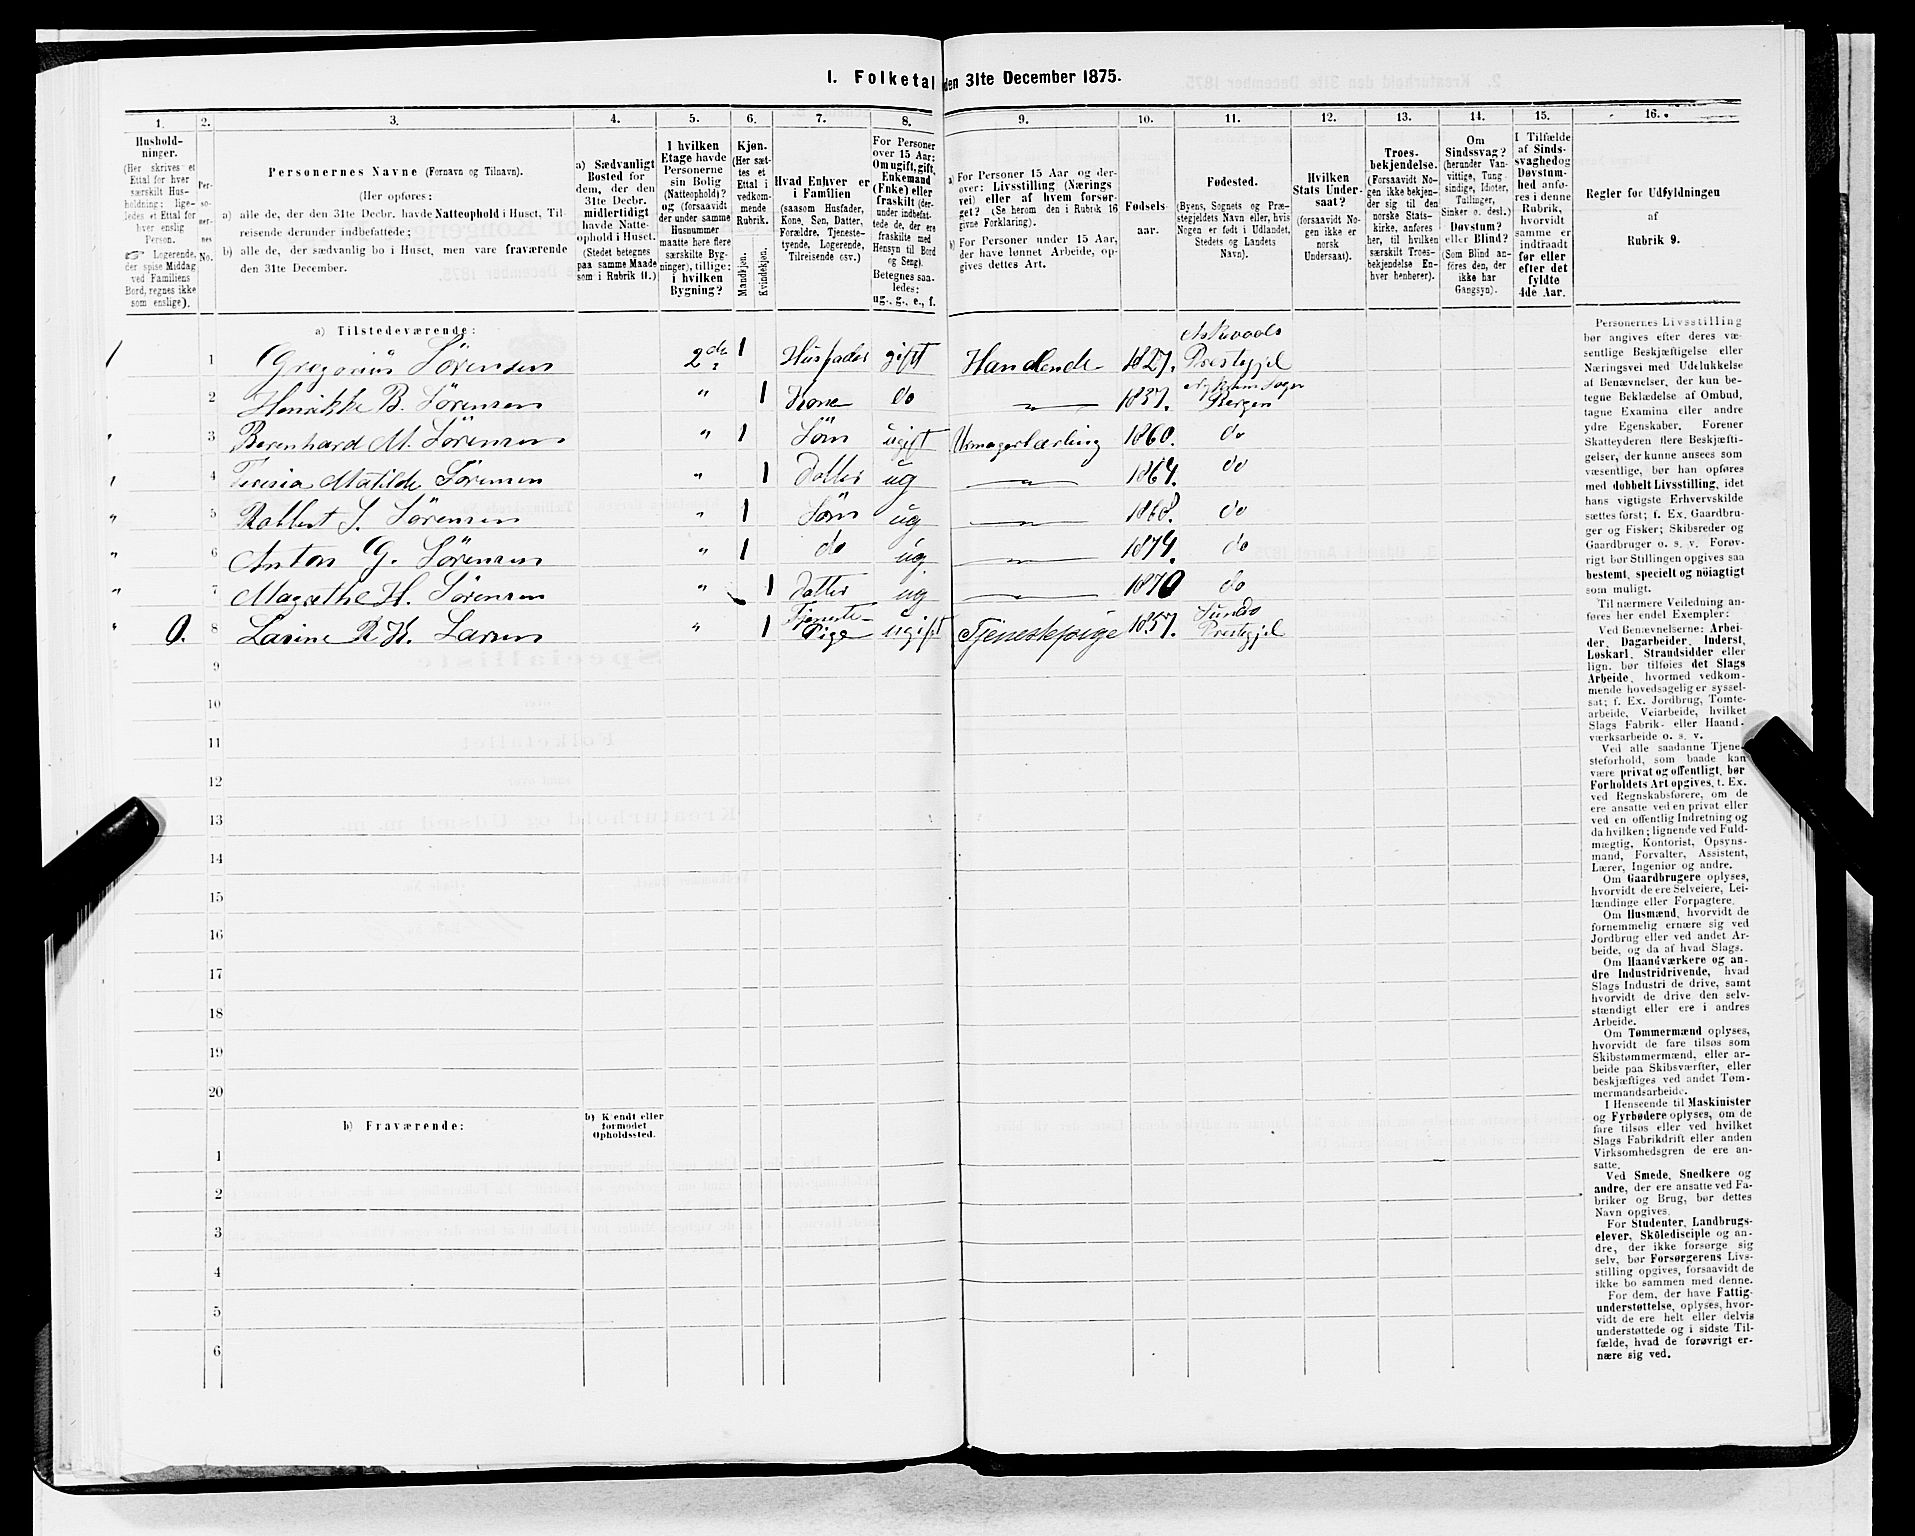 I. Folketal den 31te December 1875.
1.
2.
3.
4.
5.
6.
7.
8.
9.
10.
11.
12.
13.
14.
15.
16.
Hushold-
ninger.
(Her skrives et
Ettal for hver
særskilt Hus-
holdning; lige-
ledes et Ettal for
hver enslig
Person.
☞ Logerende,
der spise Middag
ved Familiens
Bord, regnes ikke
som enslige).
Per-
soner-
nes
No.
Personernes Navne (Fornavn og Tilnavn).
(Her opføres:
a) alle de, der den 31te Decbr. havde Natteophold i Huset, Til-
reisende derunder indbefattede;
b) alle de, der sædvanlig bo i Huset, men vare fraværende
den 31te December.
a) Sædvanligt
Bosted for
dem, der den
31te Decbr.
midlertidigt
havde Natte-
ophold i Huset.
(Stedet betegnes
paa samme Maade
som i Rubrik 11.)
I hvilken
Etage havde
Personerne
sin Bolig
(Natteophold)?
og (forsaavidt
der under samme
Husnummer
maatte høre flere
særskilte Byg-
ninger), tillige:
i hvilken
Bygning?
Kjøn.
(Her sæt-
tes et
Ettal i
vedkom-
mende
Rubrik.
Mandkjøn.
Kvindekjøn.
Hvad Enhver er
i Familien
(saasom Husfader,
Kone, Søn, Datter,
Forældre, Tjeneste-
tyende, Logerende,
Tilreisende osv.)
For Personer
over 15 Aar:
Om ugift, gift,
Enkemand
(Enke) eller
fraskilt (der-
under indbefat-
tede de, der ere
fraskilte med
Hensyn til Bord
og Seng).
Betegnes saa-
ledes:
ug., g., e., f.
a) For Personer 15 Aar og der-
over: Livsstilling (Nærings-
vei) eller af hvem forsør-
get? (Se herom den i Rubrik 16
givne Forklaring).
b) For Personer under 15 Aar,
der have lønnet Arbeide, op-
gives dettes Art.
Fødsels-
aar.
Fødested.
(Byens, Sognets og Præ-
stegjeldets Navn eller, hvis
Nogen er født i Udlandet,
Stedets og Landets
Navn).
Hvilken
Stats Under-
saat?
(forsaavidt No-
gen ikke er
norsk
Undersaat).
Troes-
bekjendelse.
(Forsaavidt No-
gen ikke bekjen-
der sig til den
norske Stats-
kirke, anføres
her, til hvilken
særskilt Troes-
bekjendelse En-
hver henhører).
Om
Sindssvag?
(herunder Van-
vittige, Tung-
sindige, Idioter,
Tullinger,
Sinker o. desl.)
Døvstum?
eller Blind?
(Som Blind an-
føres den, der
ikke har
Gangsyn).
I Tilfælde
af Sinds-
svaghed og
Døvstum-
hed anfø-
res i denne
Rubrik,
hvorvidt
samme er
indtraadt
før eller
efter det
fyldte
4de Aar.
Regler for Udfyldningen
af
Rubrik 9.
a) Tilstedeværende:
1 1 Gregorius Sörensen 2de 1 Husfader gift Handlende 1827. Askevolds Prestegjel
2 Henrikke B. Sörensen " 1 Kone do " 1837. Nykirkens Sogn Bergen
" 3 Berenhard M. Sörensen " 1 Sön ugift Urmagerlærling 1860. do
" 4 Matilde Sörensen " 1 Datter ug " 1864. do
" 5 Robbert S. Sörensen " 1 Sön ug " 1868. do
" 6 Anton G. Sörensen " 1 do ug " 1874. do
" 7 Magrethe H. Sörensen " 1 Datter ug " 1870 do
" 0. 8 Larsen " 1 Tjeneste-Pige ugift Tjenestepige 1857. Prestegjel
9
10
11
12
13
14
15
16
17
18
19
20
b) Fraværende:
b) Kjendt eller
formodet
Opholdssted.
1
2
3
4
5
6
Personernes Livsstilling
bør angives efter deres væ-
sentlige Beskjæftigelse eller
Næringsvei med Udelukkelse
af Benævnelser, der kun be-
tegne Beklædelse af Ombud,
tagne Examina eller andre
ydre Egenskaber. Forener
Skatteyderen flere Beskjæfti-
gelser, der kunne ansees som
væsentlige, bør han opføres
med dobbelt Livsstilling, idet
hans vigtigste Erhvervskilde
sættes først; f. Ex. Gaardbru-
ger og Fisker; Skibsreder og
Gaardbruger o. s. v. Forøv-
rigt bør Stillingen opgives saa
bestemt, specielt og nöiagtigt
som muligt.
Til nærmere Veiledning an-
føres her endel Exempler:
Ved Benævnelserne: Arbei-
der, Dagarbeider, Inderst,
Løskarl, Strandsidder eller
lign. bør tilføies det Slags
Arbeide, hvormed vedkom-
mende hovedsagelig er syssel-
sat; f. Ex. Jordbrug, Tomte-
arbeide, Veiarbeide, hvilket
Slags Fabrik- eller Haand-
værksarbeide o. s. v.
Ved alle saadanne Tjene-
steforhold, som baade kan
være privat og offentligt, bør
Forholdets Art opgives, t. Ex.
ved Regnskabsførere, om de
ere ansatte ved en privat eller
ved en offentlig Indretning og
da hvilken; lignende ved Fuld-
mægtig, Kontorist, Opsyns-
mand, Forvalter, Assistent,
Lærer, Ingeniør og andre.
Om Gaardbrugere oplyses,
hvorvidt de ere Selveiere, Lei-
lændinge eller Forpagtere.
Om Husmænd, hvorvidt de
fornemmelig ernære sig ved
Jordbrug eller ved andet Ar-
beide, og da af hvad Slags.
Om Haandværkere og an-
dre Industridrivende, hvad
Slags Industri de drive, samt
hvorvidt de drive den selv-
stændigt eller ere i andres
Arbeide.
Om Tømmermænd oplyses,
hvorvidt de fare tilsøs som
Skibstømmermænd, eller ar-
beide paa Skibsværfter, eller
beskjæftiges ved andet Tøm-
mermandsarbeide.
I Henseende til Maskinister
og Fyrbødere oplyses, om de
fare tilsøs eller ved hvilket
Slags Fabrikdrift eller anden
Virksomhedsgren de ere an-
satte.
Ved Smede, Snedkere og
andre, der ere ansatte ved Fa-
briker og Brug, bør dettes
Navn opgives.
For Studenter, Landbrugs-
elever, Skoledisciple og an-
dre, der ikke forsørge sig
selv, bør Forsørgerens Livs-
stilling opgives, forsaavidt de
ikke bo sammen med denne.
For dem, der have Fattig-
understøttelse, oplyses, hvor-
vidt de ere helt eller delvis
understøttede og i sidste Til-
fælde, hvad de forøvrigt er-
nære sig ved.